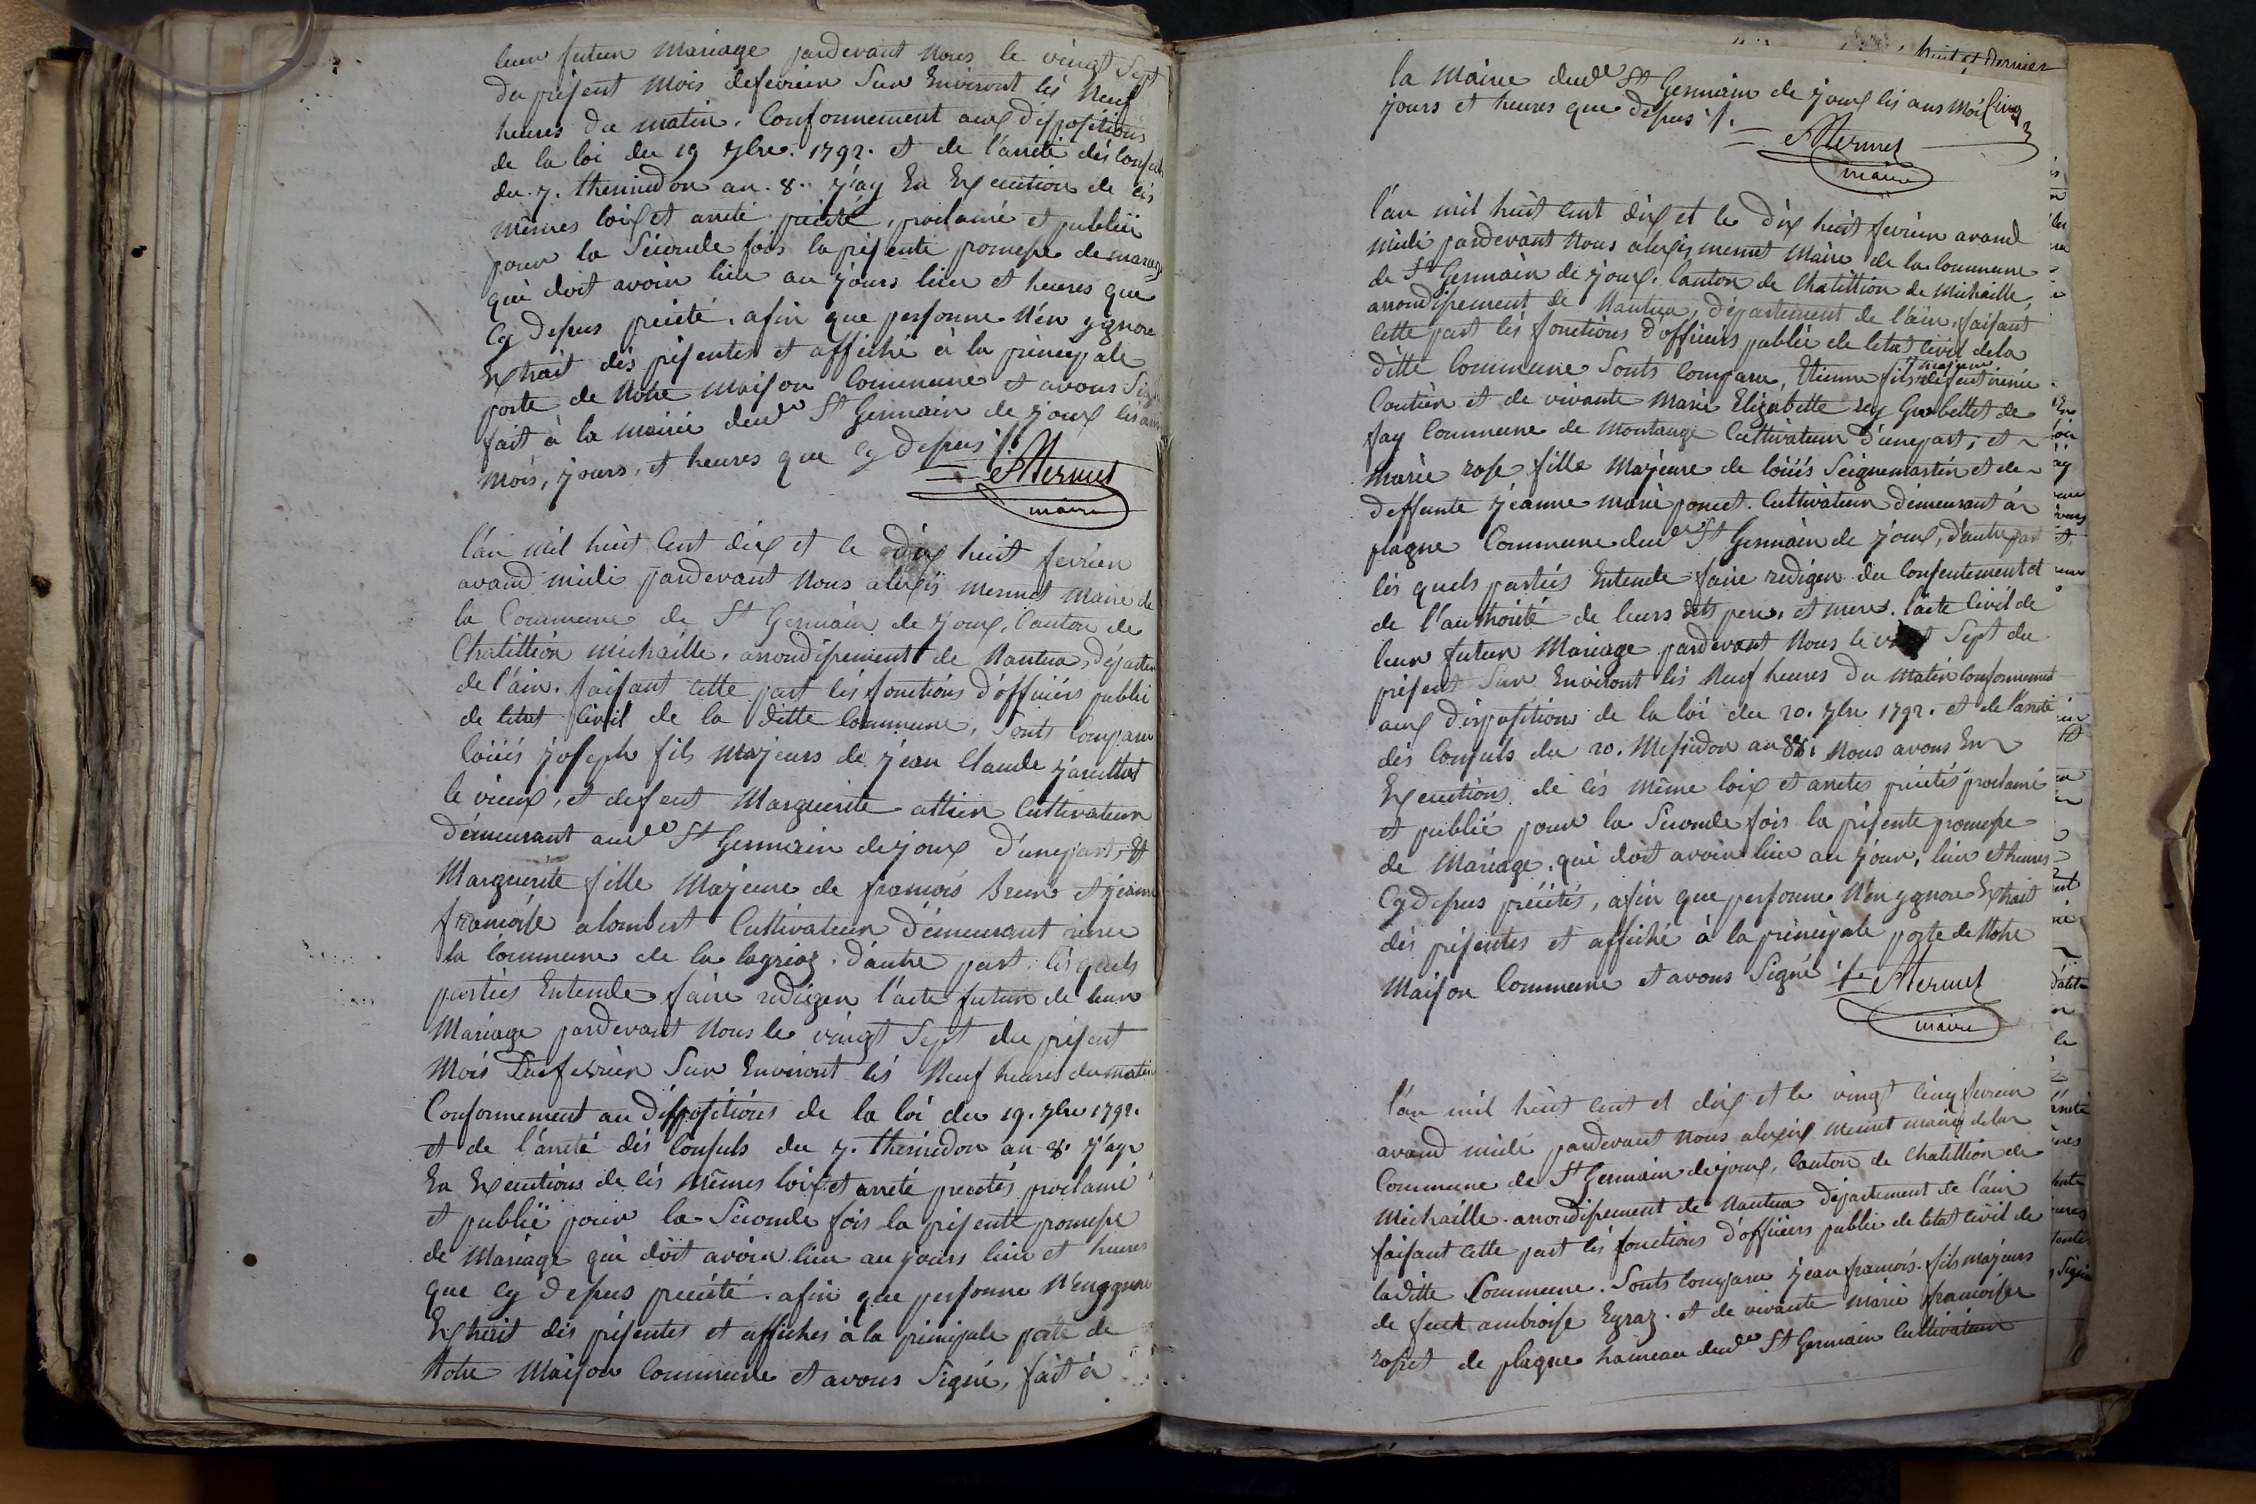 leur futur Mariage pardevant Nous le vingt Sept
du présent Mois defevrier Sur Environt lés Neuf
heures du matin. Conformement aux dispositions
de la loi du 19 7bre. 1792. et de l'arreté dés Consuls
du 7. thermidor an. 8. j'ay En Execution de cés
mêmes loix et arreté précité, proclamé et publiïe
pour la Séconde fois la présente promesse de mariage
qui doit avoir lieu au jours lieu et heures que
Cy dessus précité. afin que personne N'en ygnore
Extrait dés présentes et affiché à la principale
porte de Notre maison Commune et avons Signé
fait à la mairie dud. St Germain de joux lés ans
mois, jours, et heures que Cy dessus ./.
AMermet
maire
l'an mil huit Cent dix et le dix huit fevrier
avand midi pardevant Nous alexis mermet Maire de
la Commune de St Germain de joux, Canton de
Chatillion michaille, arrondissement de Nantua, départem
de l'ain. faisant cette part lés fonctions d'officiérs public
de letat Civil de la ditte Commune, Sonts Comparu
loüis joseph fils majeurs de jean Claude
le vieux, et defeut Marguerite Cultivateur
démeurant aud. St Germain dejoux d'unepart, Et
Marguerite fille Majeure de francois Brun et jeanne
francoise alombert Cultivateur Démeurant
la Commune de la . d'autre part. lés quels
partiés Entende faire rediger l'acte futur de leur
Mariage pardevant Nous le vingt Sept du présent
Mois fevrier Sur Environt lés Neuf heures du matin
Conformement au dispositions de la loi du 19. 7bre 1792.
et de l'arreté dés Consuls du 7. thermidor an 8. j'ay
En Executions de cés mêmes loix et arreté precités proclamé
et publiïe pour la Séconde fois la présente promesse
de Mariage qui doit avoir lieu au jours lieu et heures
que Cy dessus précité. afin que personne N'enygnore
Extrait dés présentes et affiches à la principale porte de
Notre Maison Commune et avons Signé, fait à
huit et dernier
la Mairie dud. St Germain de joux lés ans Moi
jours et heures que dessus ./.
AMermet
maire
l'an mil huit Cent dix et le dix huit fevrier avand
midi pardevant Nous alexis mermet Maire de la Commune
de St Germain de joux, Canton de Chatillion de Michaille,
arrondissement de Nantua, département de l'ain, faisant
cette part lés fonctions d'officiérs public de letat Civil dela
ditte Commune Sonts Comparu, Etienne fils majeur défeut
et de vivante Marie Elizabette Rey Grobellet de
fay Commune de montange Cultivateur d'unepart, et
marie rose fille Majeure de loüis Seignemartin et de
deffunte jeanne marie poncet. Cultivateur démeurant à
plagne Commune dud. St Germain de joux, d'autre part
lés quels partiés Entende faire rediger du Consentement et
de l'authorité de leurs dts pere, et mere, l'acte Civil de
leur futeur Mariage pardevant Nous le vingt Sept du
présent Sur Environt lés Neuf heures du matin Conformement
aux dispositions de la loi du 20. 7bre 1792. et de l'arreté
dés Consuls du 20. Messidor an 8. Nous avons En
Executions dé cés même loix et arretes précités proclamé
et publié pour la Séconde fois la présente promesse
de Mariage, qui doit avoir lieu au jour, lieu et heures
Cy dessus précités, afin que personne N'en ygnore Extrait
dés présentes et affiché à la principale porte de Notre
Maison Commune et avons Signé ./.
AMermet
maire
l'an mil huit Cent et dix et le vingt Cinq fevrier
avand midi pardevant Nous alexis mermet maire dela
Commune de St Germain dejoux, Canton de Chatillion de
Michaille. arrondissement de Nantua département de l'ain
faisant cette part lés fonctions d'officiers public de letat Civil de
laditte Commune. Sonts Comparu jean francois. fils majeurs
de feut ambroise Egraz. et de vivante marie francoise
rosset de plagne hameau dud. St Germain Cultivateur